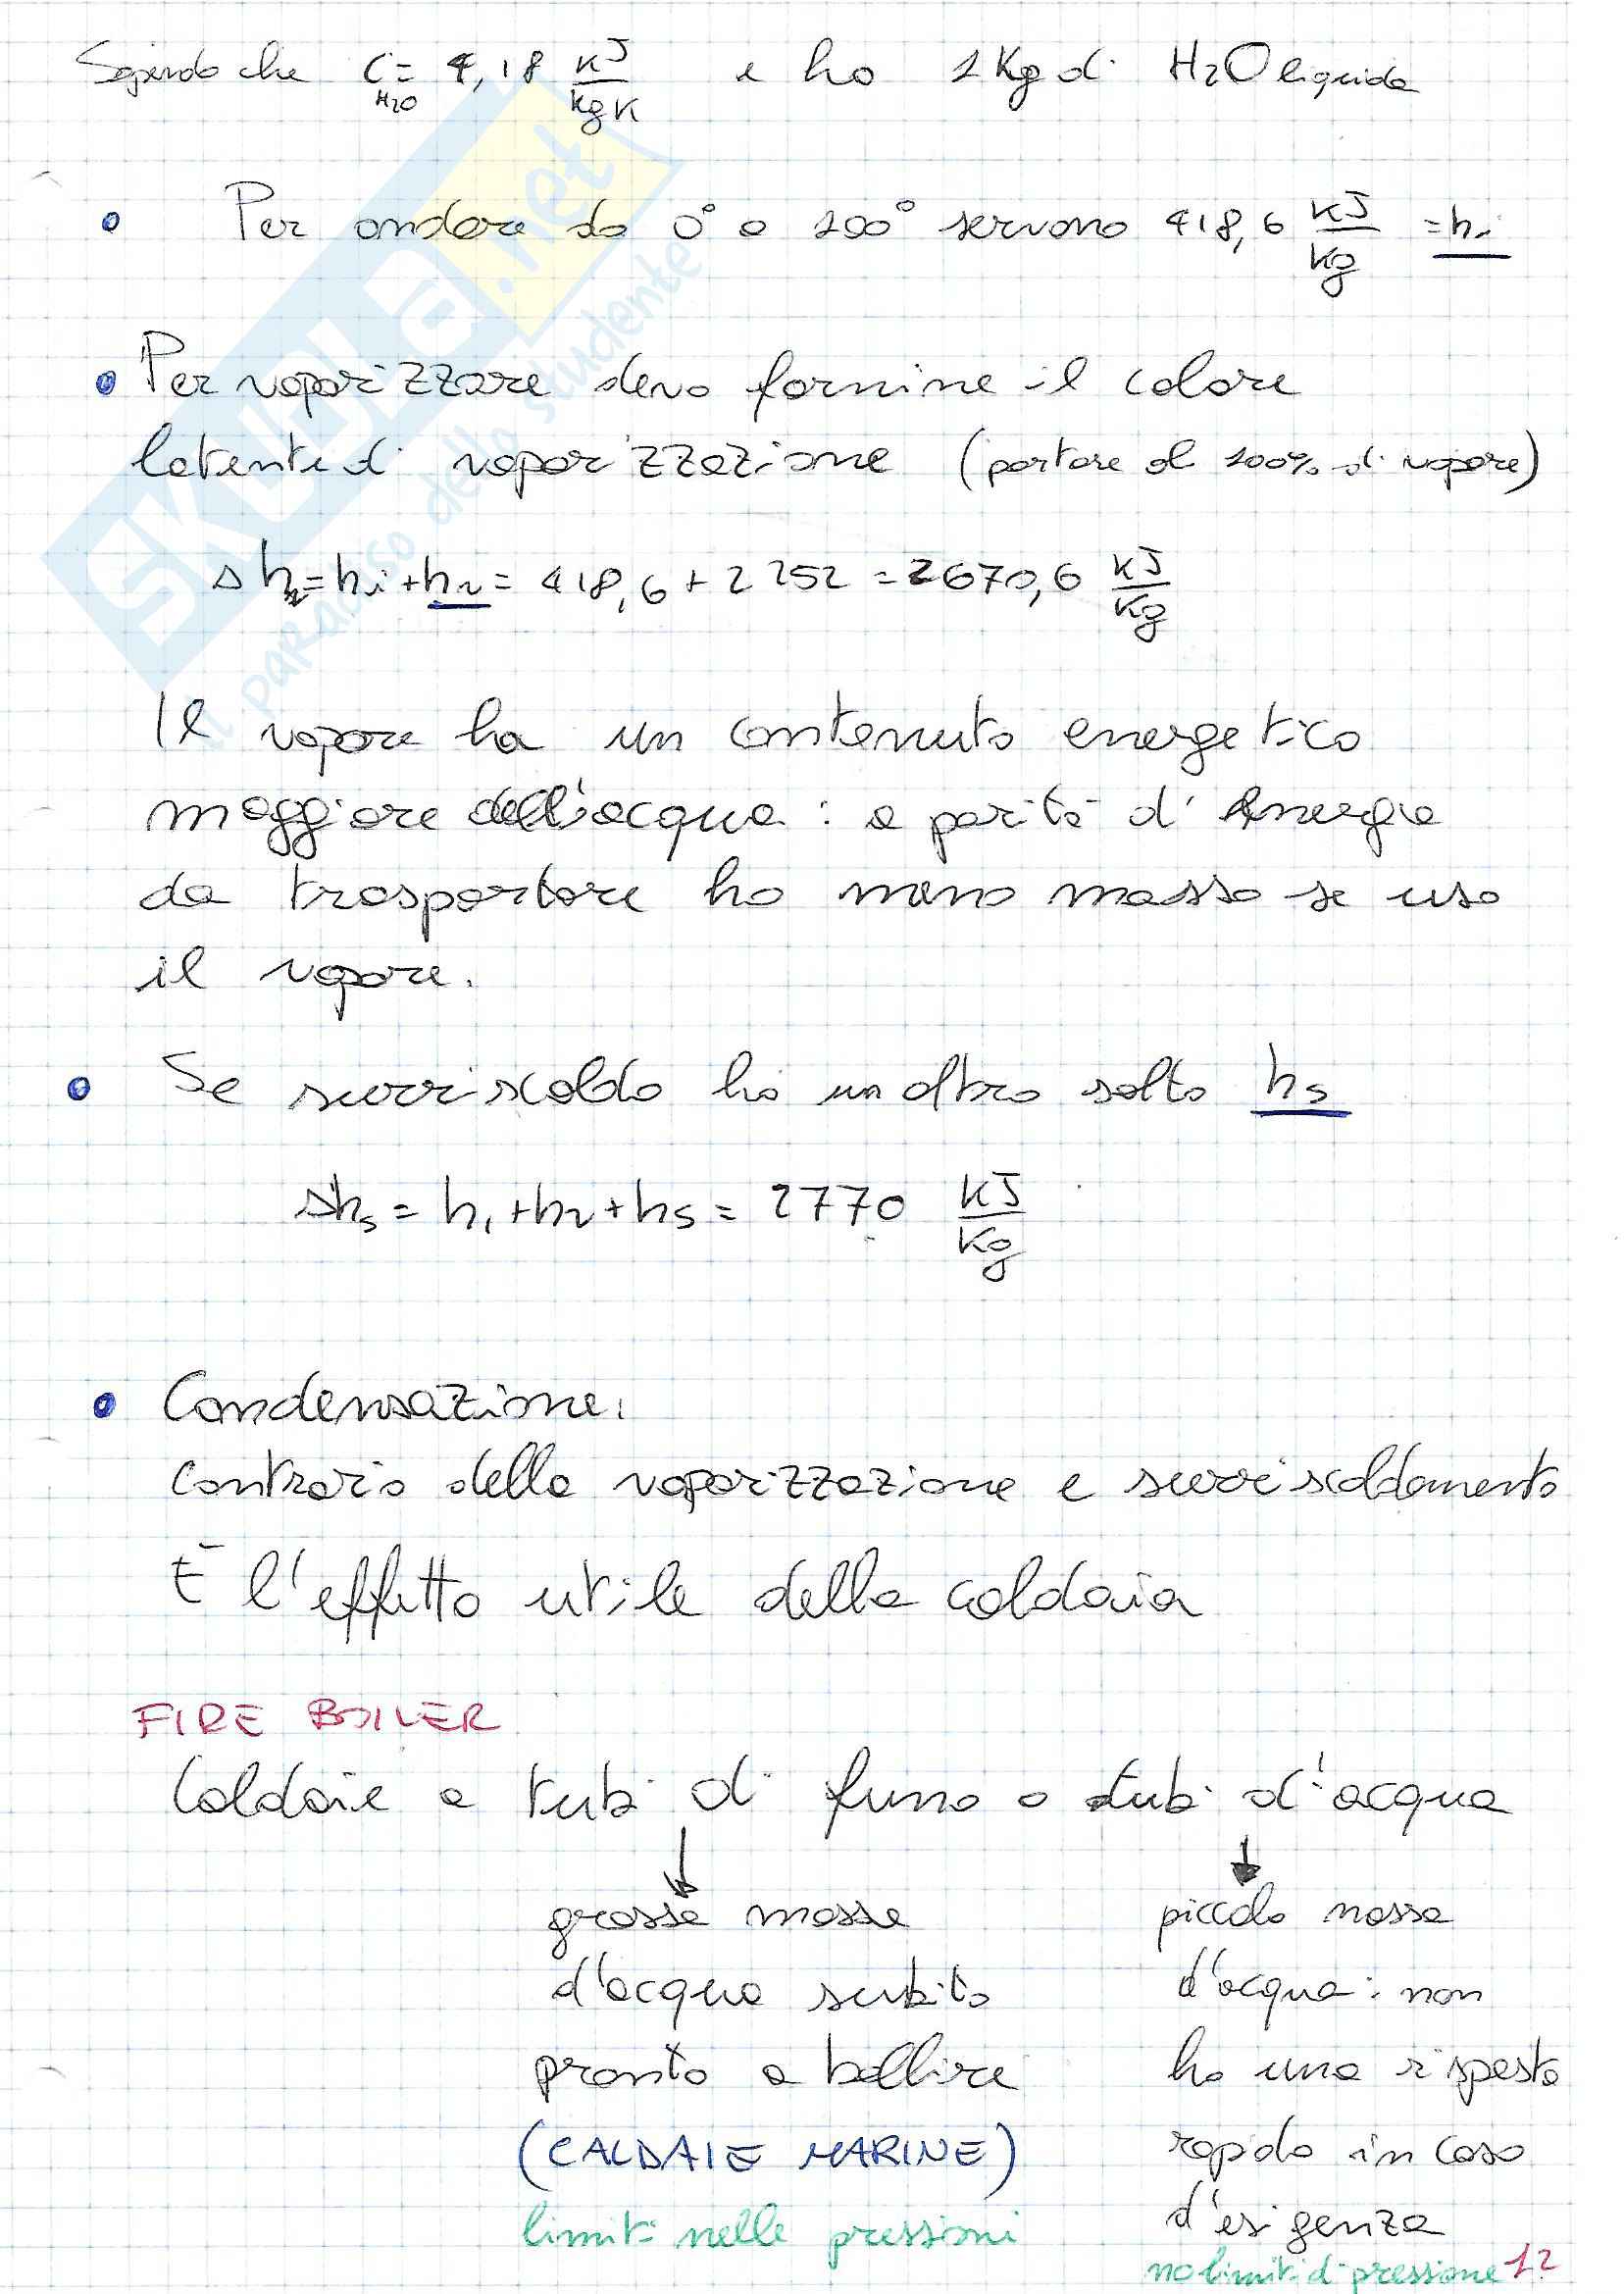 Sapendo che C H2O = 4,18 kJ/kgK e ho 1 Kg di H2O liquida
• Per andare da 0° a 100° servono 418,6 kJ/kg = hi
• Per vaporizzare devo fornire il calore
latente di vaporizzazione (portare al 100% di vapore)
Δh2 = hi + h2 = 418,6 + 2252 = 2670,6 kJ/Kg
Il vapore ha un contenuto energetico
maggiore dell'acqua: a parità d'energia
da trasportare ho meno massa se uso
il vapore.
• Se surriscaldo ho un altro salto hs
Δhs = h1 + h2 + hs = 2770 kJ/Kg
• Condensazione:
contrario della vaporizzazione e surriscaldamento
È l'effetto utile della caldaia
FIRE BOILER
Caldaie a tubi di fumo o tubi d'acqua
grossa massa
d'acqua subito
pronta a bollire
(CALDAIE MARINE)
limiti nelle pressioni
piccola massa
d'acqua: non
ho una risposta
rapida in caso
d'esigenza
no limiti di pressione
12
SKUOLA.net
il paradiso dello studente